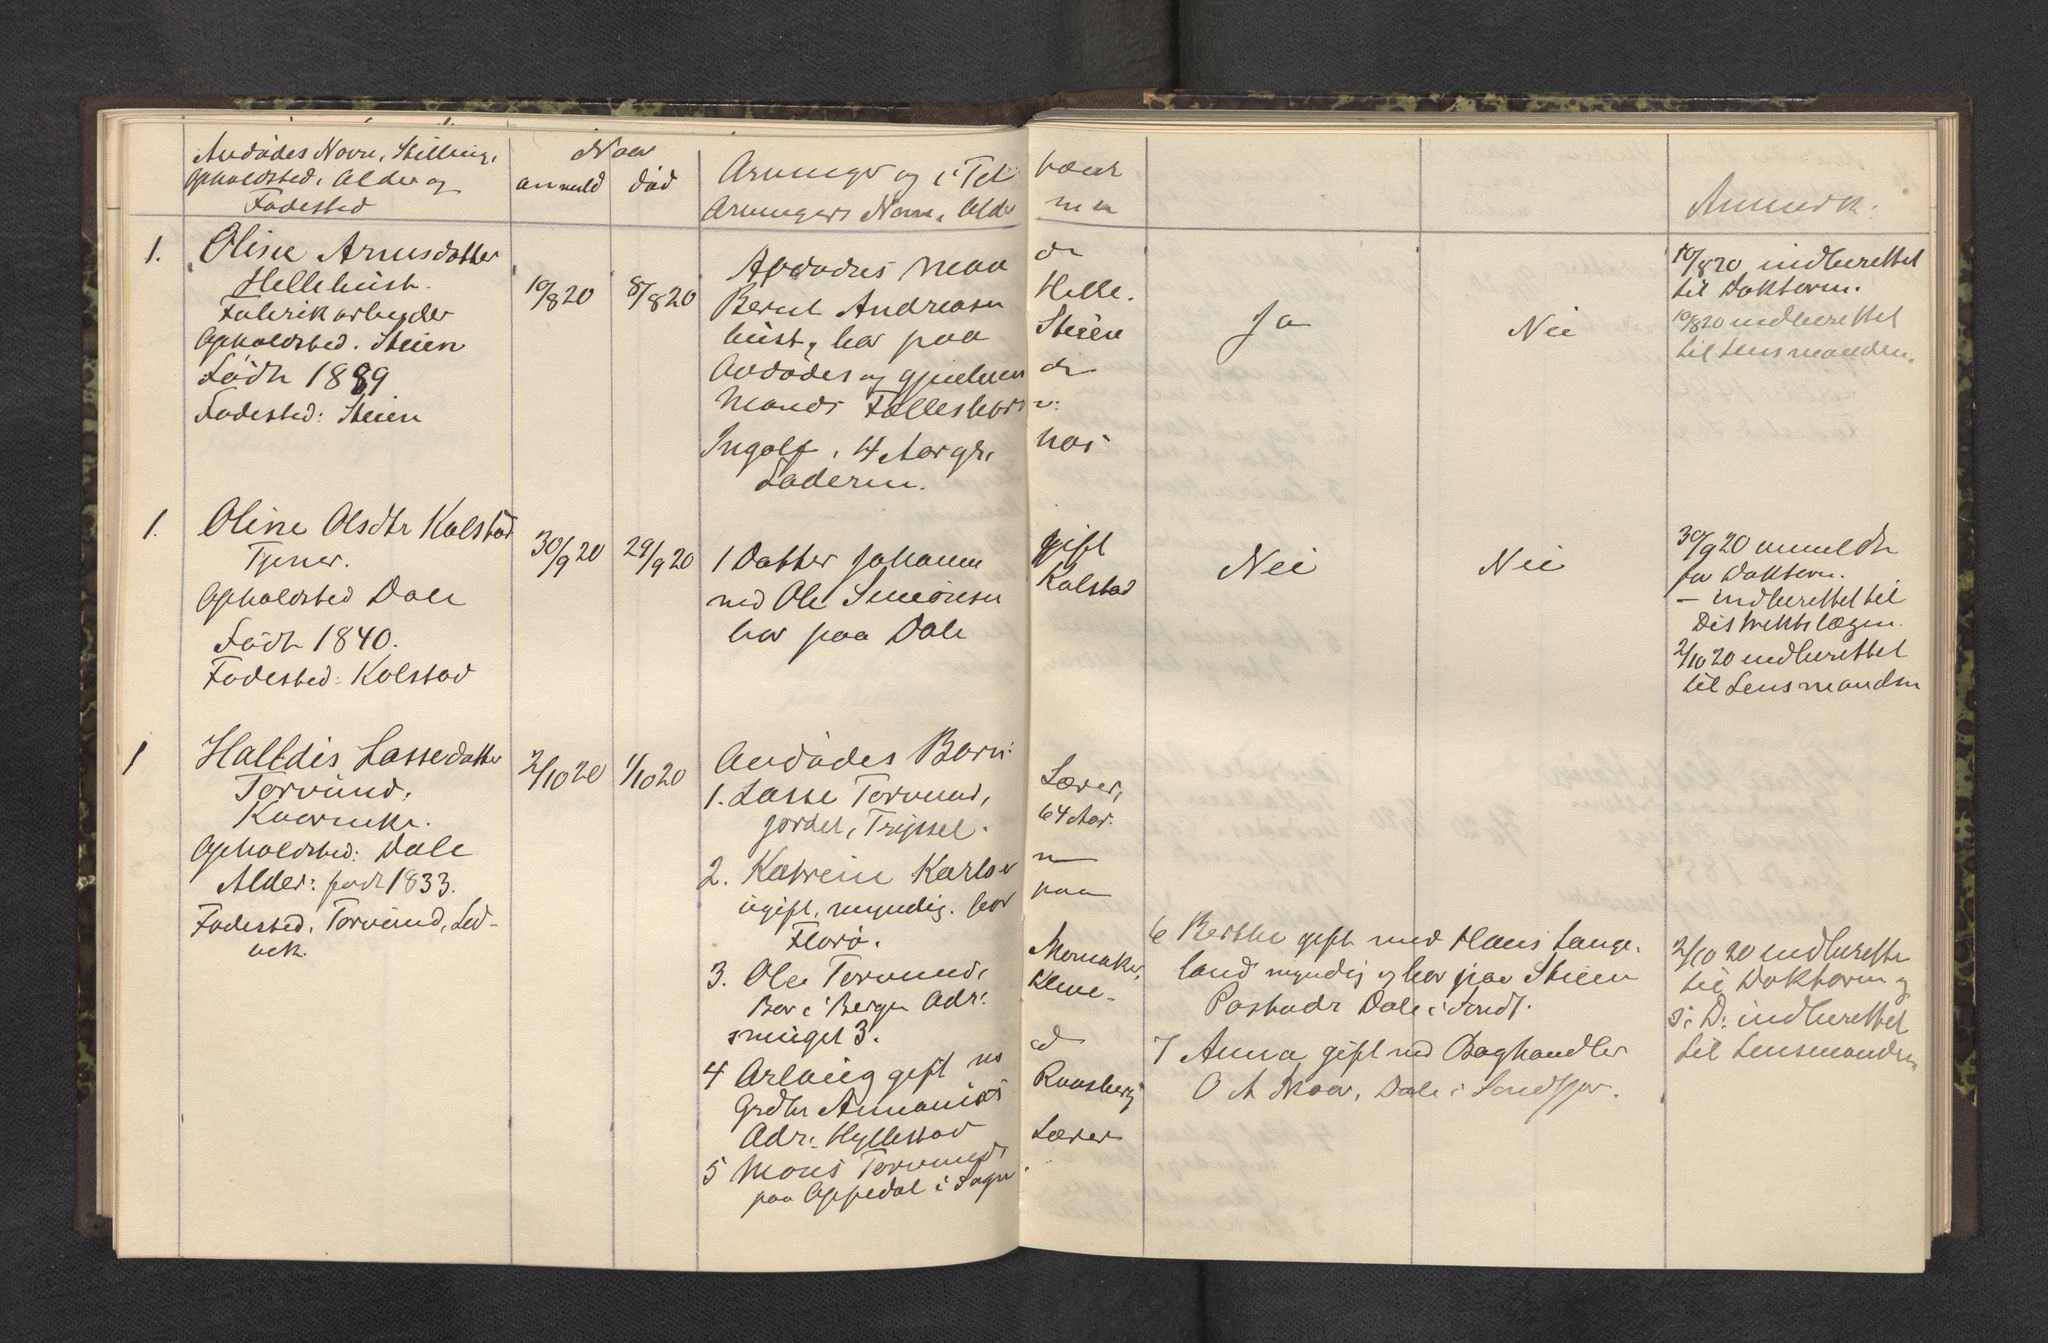 Avdödes Navn, Stilling,
Opholdsted, Alder og
Fødested
Naar
anmeld död
Arvinger og i Tel
Arvingers Navn, Alder
Anmerk:
1. Oline Arnesdatter
Hellehüst.
Fabrikarbeider
Opholdsted. Steien
Född 1889
Fødested: Steien
10/8 20 8/8 20
Avdödes man
Bernt Andreasen
hüst, bor paa
Avdödes og gjenlevn
Mands Fællesbarn
Ingolf, 4 Aar gl.
Faderen.
de
Helle.
Steien
de
hos
Ja
Nei
10/8 20 indberettet
til Doktoren.
10/8 20 indberettet
til Lensmanden.
1. Oline Olsdtr Kolstad
Tjener.
Opholdsted Dale
Född 1840.
Fødested: Kolstad
30/9 20 29/9 20
1 Datter Johanne
med Ole Simonsen
bor paa Dale
gift
Kolstad
Nei
Nei
30/9 20 anmeldt
for Doktoren.
– indberettet til
Distriktslægen.
2/10 20 indberettet
til Lensmanden
1 Halldis Lassedatter
Torvund,
Kaarenke.
Opholdsted: Dale
Alder: född 1833.
Fødested: Torvund, Lad-
vik.
2/10 20 1/10 20
Avdödes Barn:
1. Lasse Torvund,
jordet, Trysil.
2. Katrine Karlson
ugift, myndig. bor
Florö.
3. Ole Torvund,
Bor i Bergen Adr:
smuget 3.
4 Arlaug gift m
Grdbr Ananias
Adr: Hyllestad
5 Mons Torvund,
paa Oppedal i Sogn
Lærer,
64 Aar.
paa
Skomaker,
Kleive-
Raasberg
Lærer
6 Berthe gift med Hans Lange-
land myndig og bor paa Steien
Postadr Dale i Sondf.
7 Anna gift med Baghandler
O A Skaar, Dale i Sondfjor.
2/10 20 indberettet
til Doktoren og
s. D: indberettet
til Lensmanden